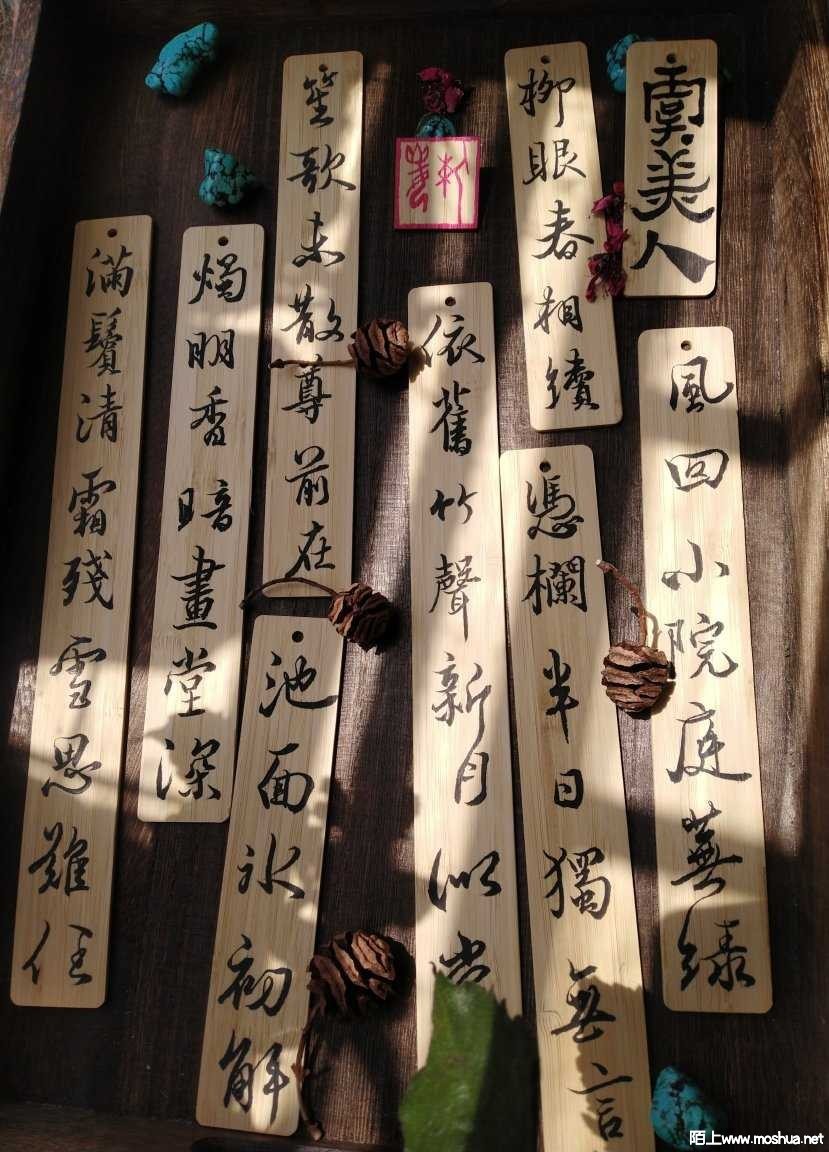 虞美人
風回小院庭蕪綠
柳眼春相續
憑欄半日獨無言
依舊竹聲新月似當
笙歌未散尊前在
池面冰初解
燭明香暗畫堂深
滿鬢清霜殘雪思難任
陌上www.moshua.net